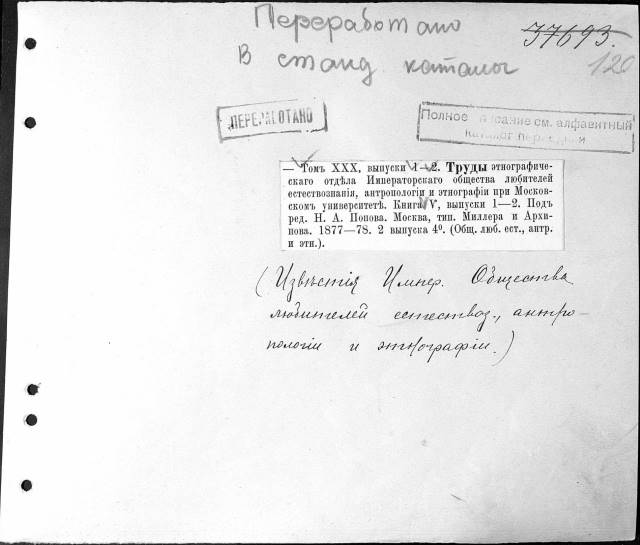 Переработано
37693.
В станд. каталог
120
ПЕРЕРАБОТАНО
Полное описание см. алфавитный
каталог периодики
— Томъ XXX, выпуски 1—2. Труды этнографиче-
скаго отдѣла Императорскаго общества любителей
естествознанія, антропологіи и этнографіи при Москов-
скомъ университетѣ. Книга V, выпуски 1—2. Подъ
ред. Н. А. Попова. Москва, тип. Миллера и Архи-
пова. 1877—78. 2 выпуска 4⁰. (Общ. люб. ест., антр.
и этн.).
(Извѣстія Импер. Общества
любителей естествоз., антро-
пологіи и этнографіи.)